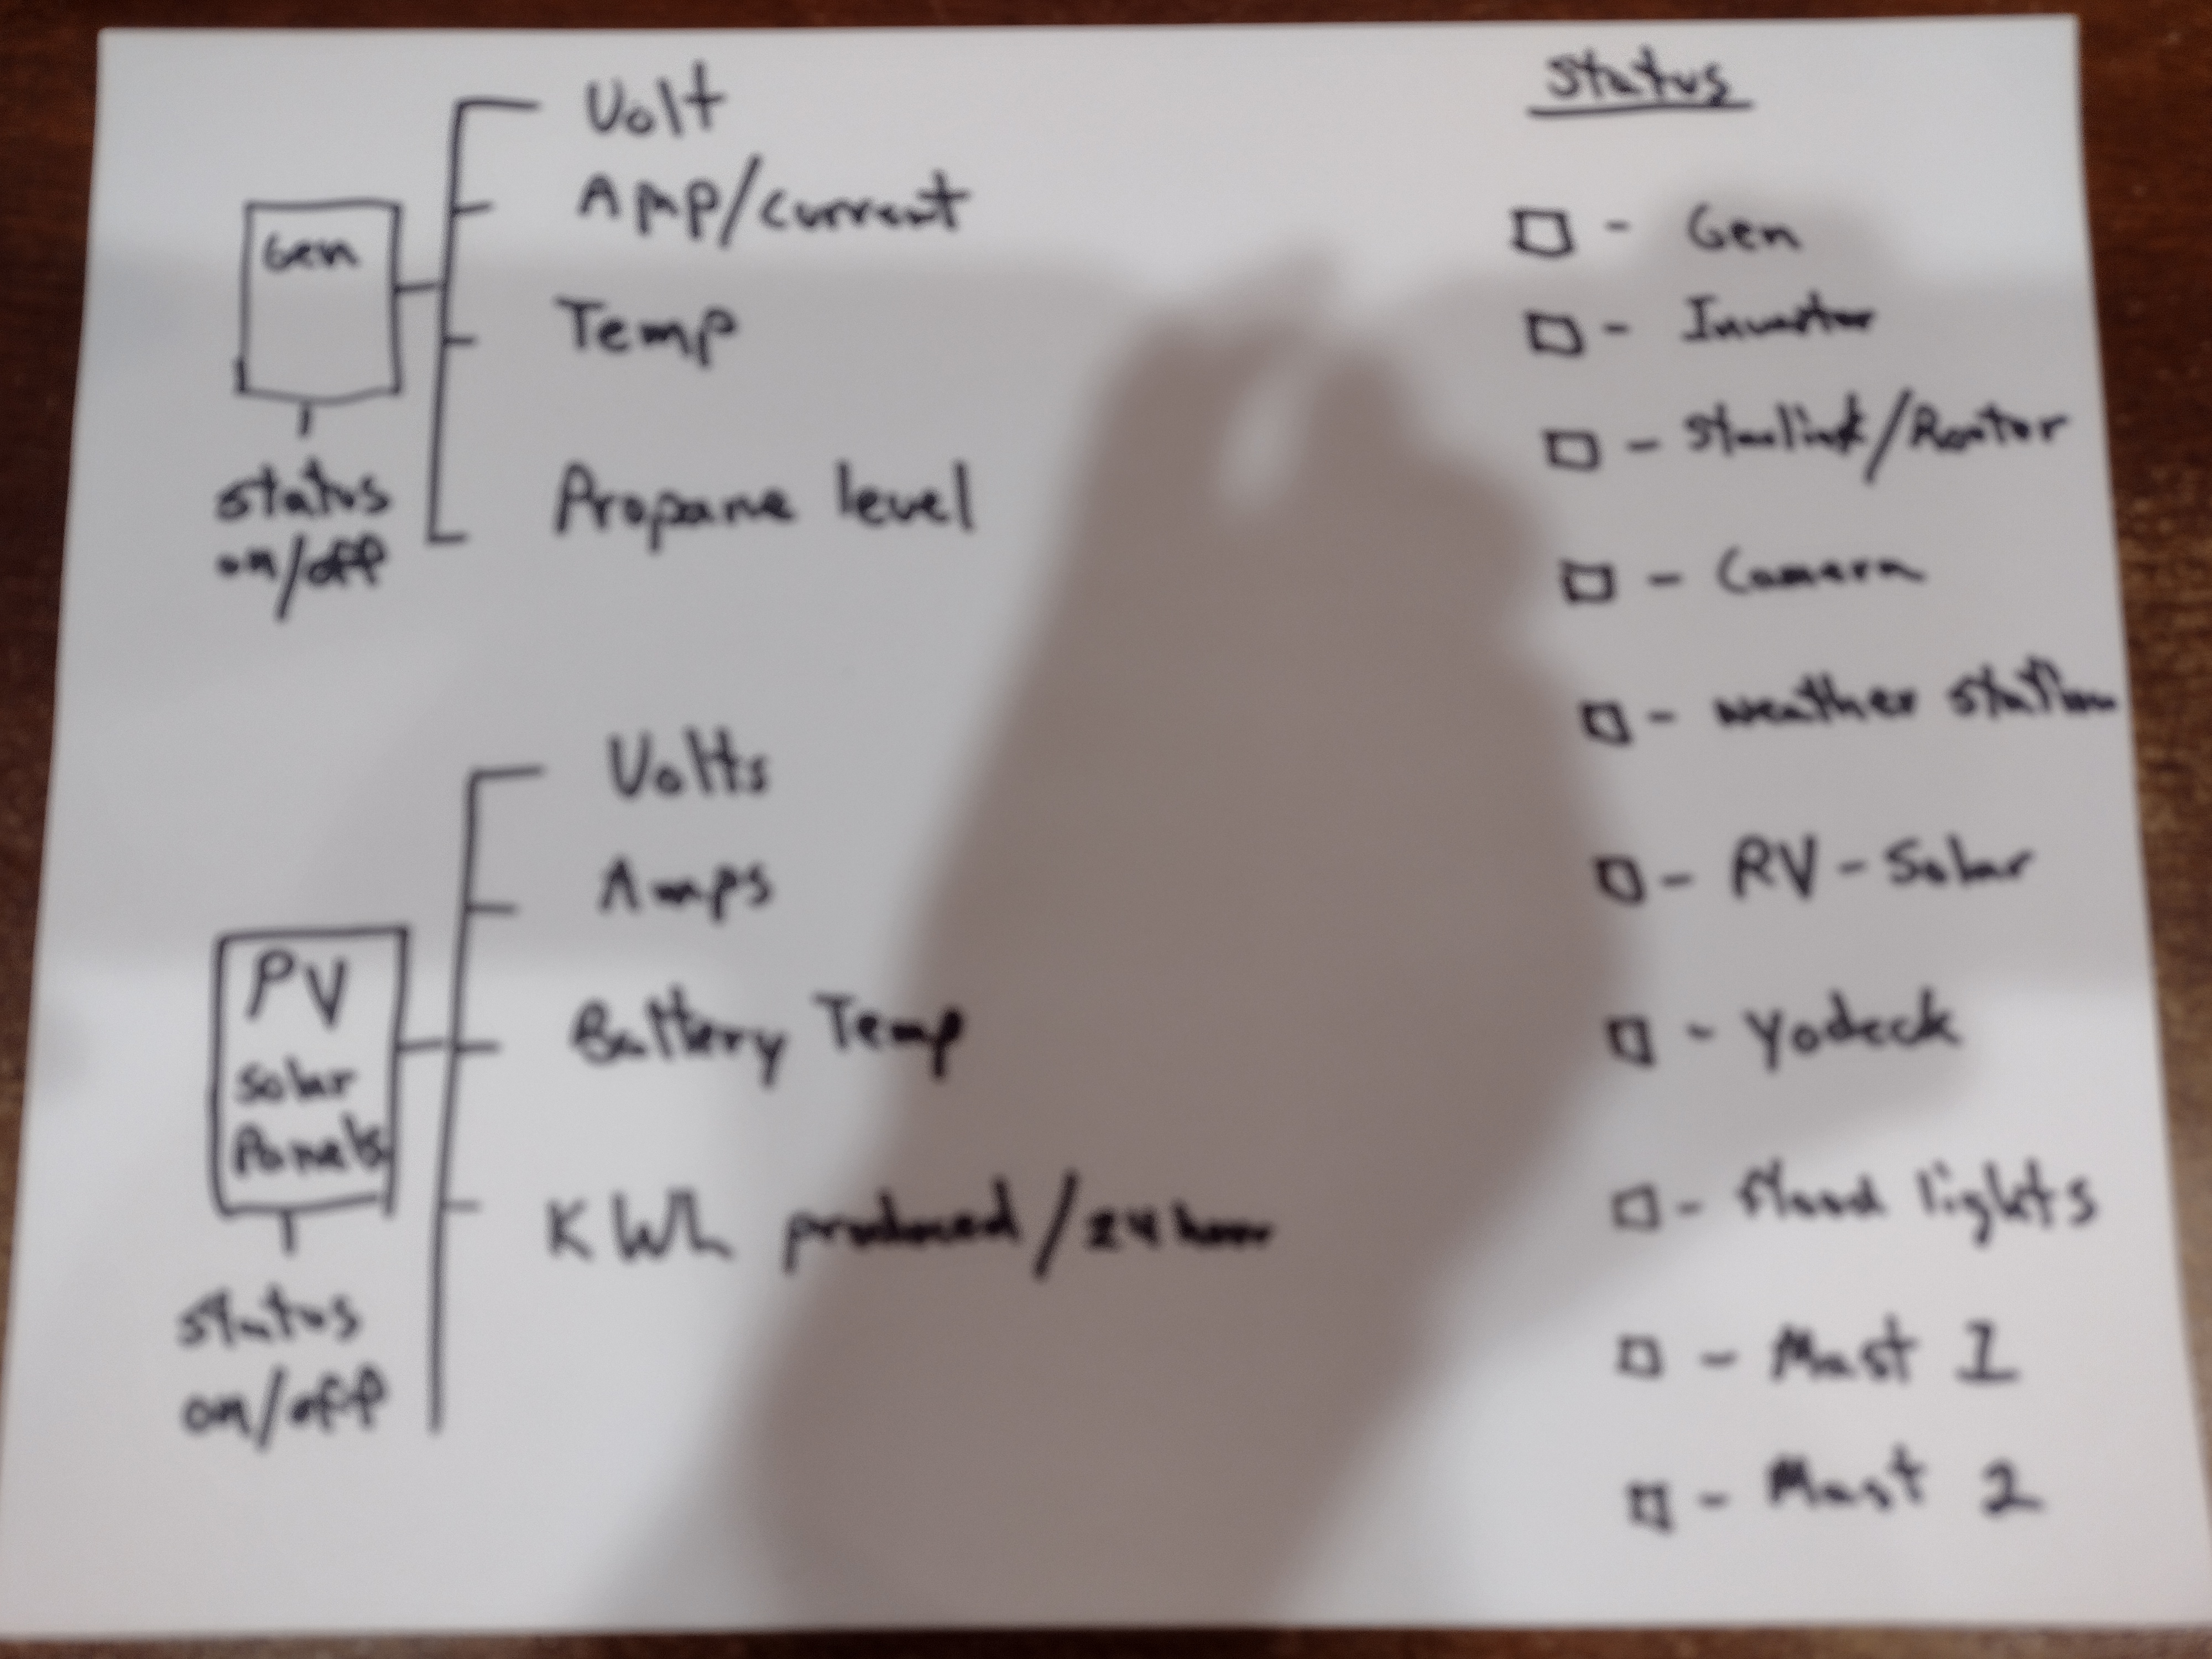 Gen
Status
on/off
Volt
Amp/current
Temp
Propane level
PV
Solar
Panels
Status
on/off
Volts
Amps
Battery Temp
KWh produced/24 hour
Status
□ - Gen
□ - Inverter
□ - Starlink/Router
□ - Camera
□ - weather station
□ - RV-Solar
□ - Yodeck
□ - flood lights
□ - Mast 1
□ - Mast 2